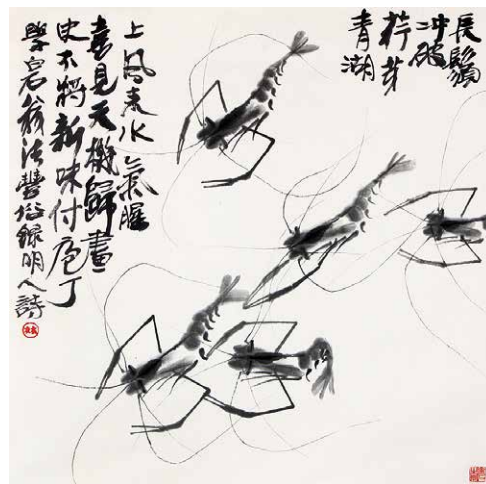 長鬚
冲破
荇芽
青湖
上風来水气腥
喜見天機歸畫
史不將新味付庖丁
學白石翁法豐俗錄明人詩